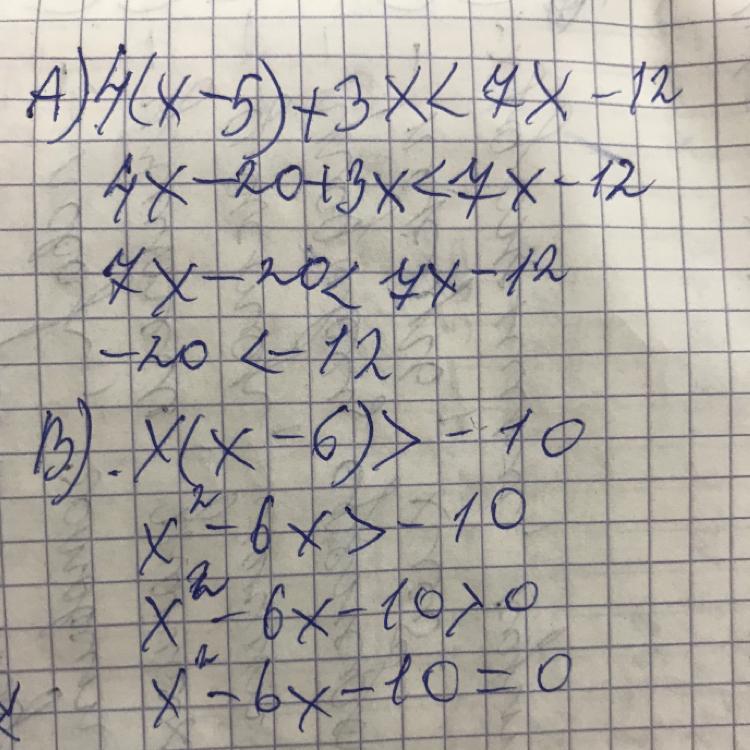 A) 4(x-5)+3x<7x-12
4x-20+3x<7x-12
7x-20<7x-12
-20<-12
B). x(x-6)>-10
x²-6x>-10
x²-6x-10>0
x²-6x-10=0
x